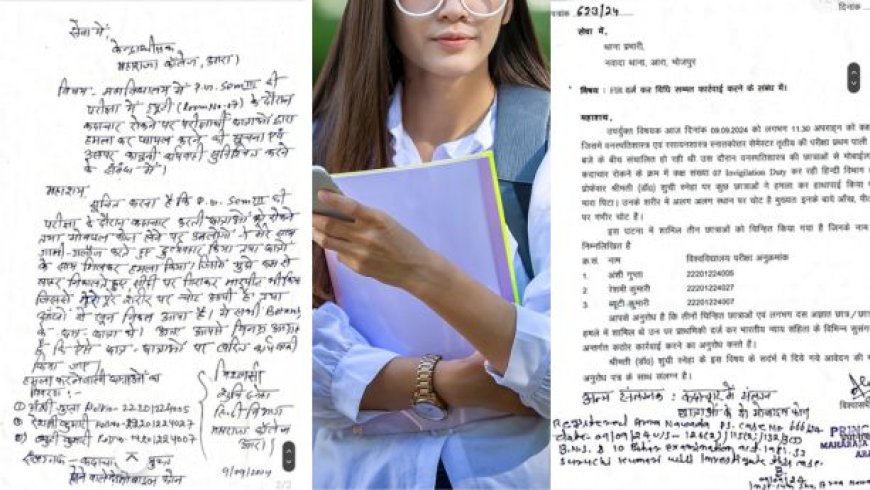 सेवा में,
केन्द्राधीक्षक
महाराजा कॉलेज, आरा)
विषय: महाविद्यालय में P.G. Sem III की
परीक्षा में ड्यूटी (Room No-07) के दौरान
कदाचार रोकने पर परीक्षार्थी छात्राओं द्वारा
हमला कर घायल करने की सूचना एवं
उसपर कानूनी कार्यवाही सुनिश्चित करने
के संबंध में।
महाशय,
सूचित करना है कि P.G. Sem III की
परीक्षा के दौरान कदाचार करती छात्राओं को रोकने
तथा मोबाइल फोन लेने पर उनलोगों ने मेरे साथ
गाली-गलौज करते हुए दुर्व्यवहार किया तथा
के साथ मिलकर हमला किया। जिसमें मुझे रूम से
बाहर निकलते हुए सीढ़ी पर गिराकर मारपीट भी किया
जिससे मेरे पूरे शरीर पर चोट आयी है तथा
से खून निकल आया है। ये सभी Botany
के छात्र थे। अतः आपसे विनम्र आग्रह
है कि ऐसे छात्र-छात्राओं पर त्वरित कार्यवाही
किया जाए।
हमला करने वाली छात्राओं का
विवरण:
① अंशी गुप्ता Roll no- 22201224005
② रेशमी कुमारी Roll no- 22201224027
③ ब्यूटी कुमारी Roll no- 22201224007
विश्वासी
हिन्दी विभाग
महाराजा कॉलेज
आरा।
9/09/2024
2/2
623/24
दिनांक
सेवा में,
थाना प्रभारी,
नवादा थाना, आरा, भोजपुर
विषय : FIR दर्ज कर विधि सम्मत कार्रवाई करने के संबंध में।
महाशय,
उपर्युक्त विषयक आज दिनांक 09.09.2024 को लगभग 11.30 अपराहन को
जिसमें वनस्पतिशास्त्र एवं रसायनशास्त्र स्नातकोत्तर सेमेस्टर तृतीय की परीक्षा प्रथम पाली
बजे के बीच संचालित हो रही थी उस दौरान वनस्पतिशास्त्र की छात्राओं से मोबाईल
कदाचार रोकने के क्रम में कक्ष संख्या 07 Invigilation Duty कर रही हिन्दी विभाग
प्रोफेसर श्रीमती (डॉ०) शुची स्नेहा पर कुछ छात्राओं ने हमला कर हाथापाई किया
मारा पिटा। उनके शरीर में अलग अलग स्थान पर चोट है मुख्यतः इनके बाये आँख, पीठ
पर गंभीर चोट है।
इस घटना में शामिल तीन छात्राओं को चिन्हित किया गया है जिनके नाम
निम्नलिखित है
क्र.सं. नाम विश्वविद्यालय परीक्षा अनुक्रमांक
1. अंशी गुप्ता 22201224005
2. रेशमी कुमारी 22201224027
3. ब्यूटी कुमारी 22201224007
आपसे अनुरोध है कि तीनों चिन्हित छात्राओं एवं लगभग दस अज्ञात छात्र/छात्रा
हमले में शामिल थे उन पर प्राथमिकी दर्ज कर भारतीय न्याय संहिता के विभिन्न सुसंगत
अन्तर्गत कठोर कार्रवाई करने का अनुरोध करते है।
श्रीमती (डॉ०) शुची स्नेहा के इस विषय के संदर्भ में दिये गये आवेदन की
अनुरोध पत्र के साथ संलग्न है।
विश्वास
Registered Arra Nawada P.S. case No
date- 09/09/24 U/S- 126(2)/115(2)/132/
B.N.S. & 10 Bihar examination act 1981.
suruchi kumari will investigate this case.
PRINC
MAHARAJA
ARA
09/09/24